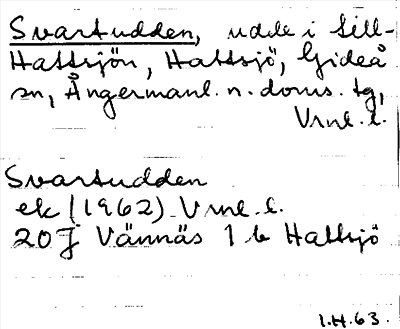 Svartudden, udde i Sill-
Hattsjön, Hattsjö, Gideå
sn, Ångermanl. n. doms. tg,
Vrnl. l.
Svartudden
ek (1962) Vrnl. l.
20J Vännäs 1 b Hattsjö
I.H.63.